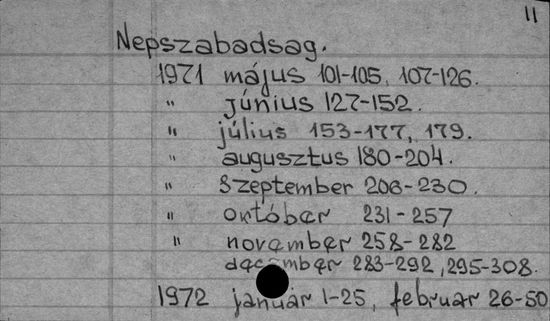 11
Nepszabadsag.
1971 május 101-105, 107-126.
" június 127-152.
" július 153-177, 179.
" augusztus 180-204.
" Szeptember 206-230.
" október 231-257
" november 258-282
december 283-292, 295-308.
1972 január 1-25, februar 26-50